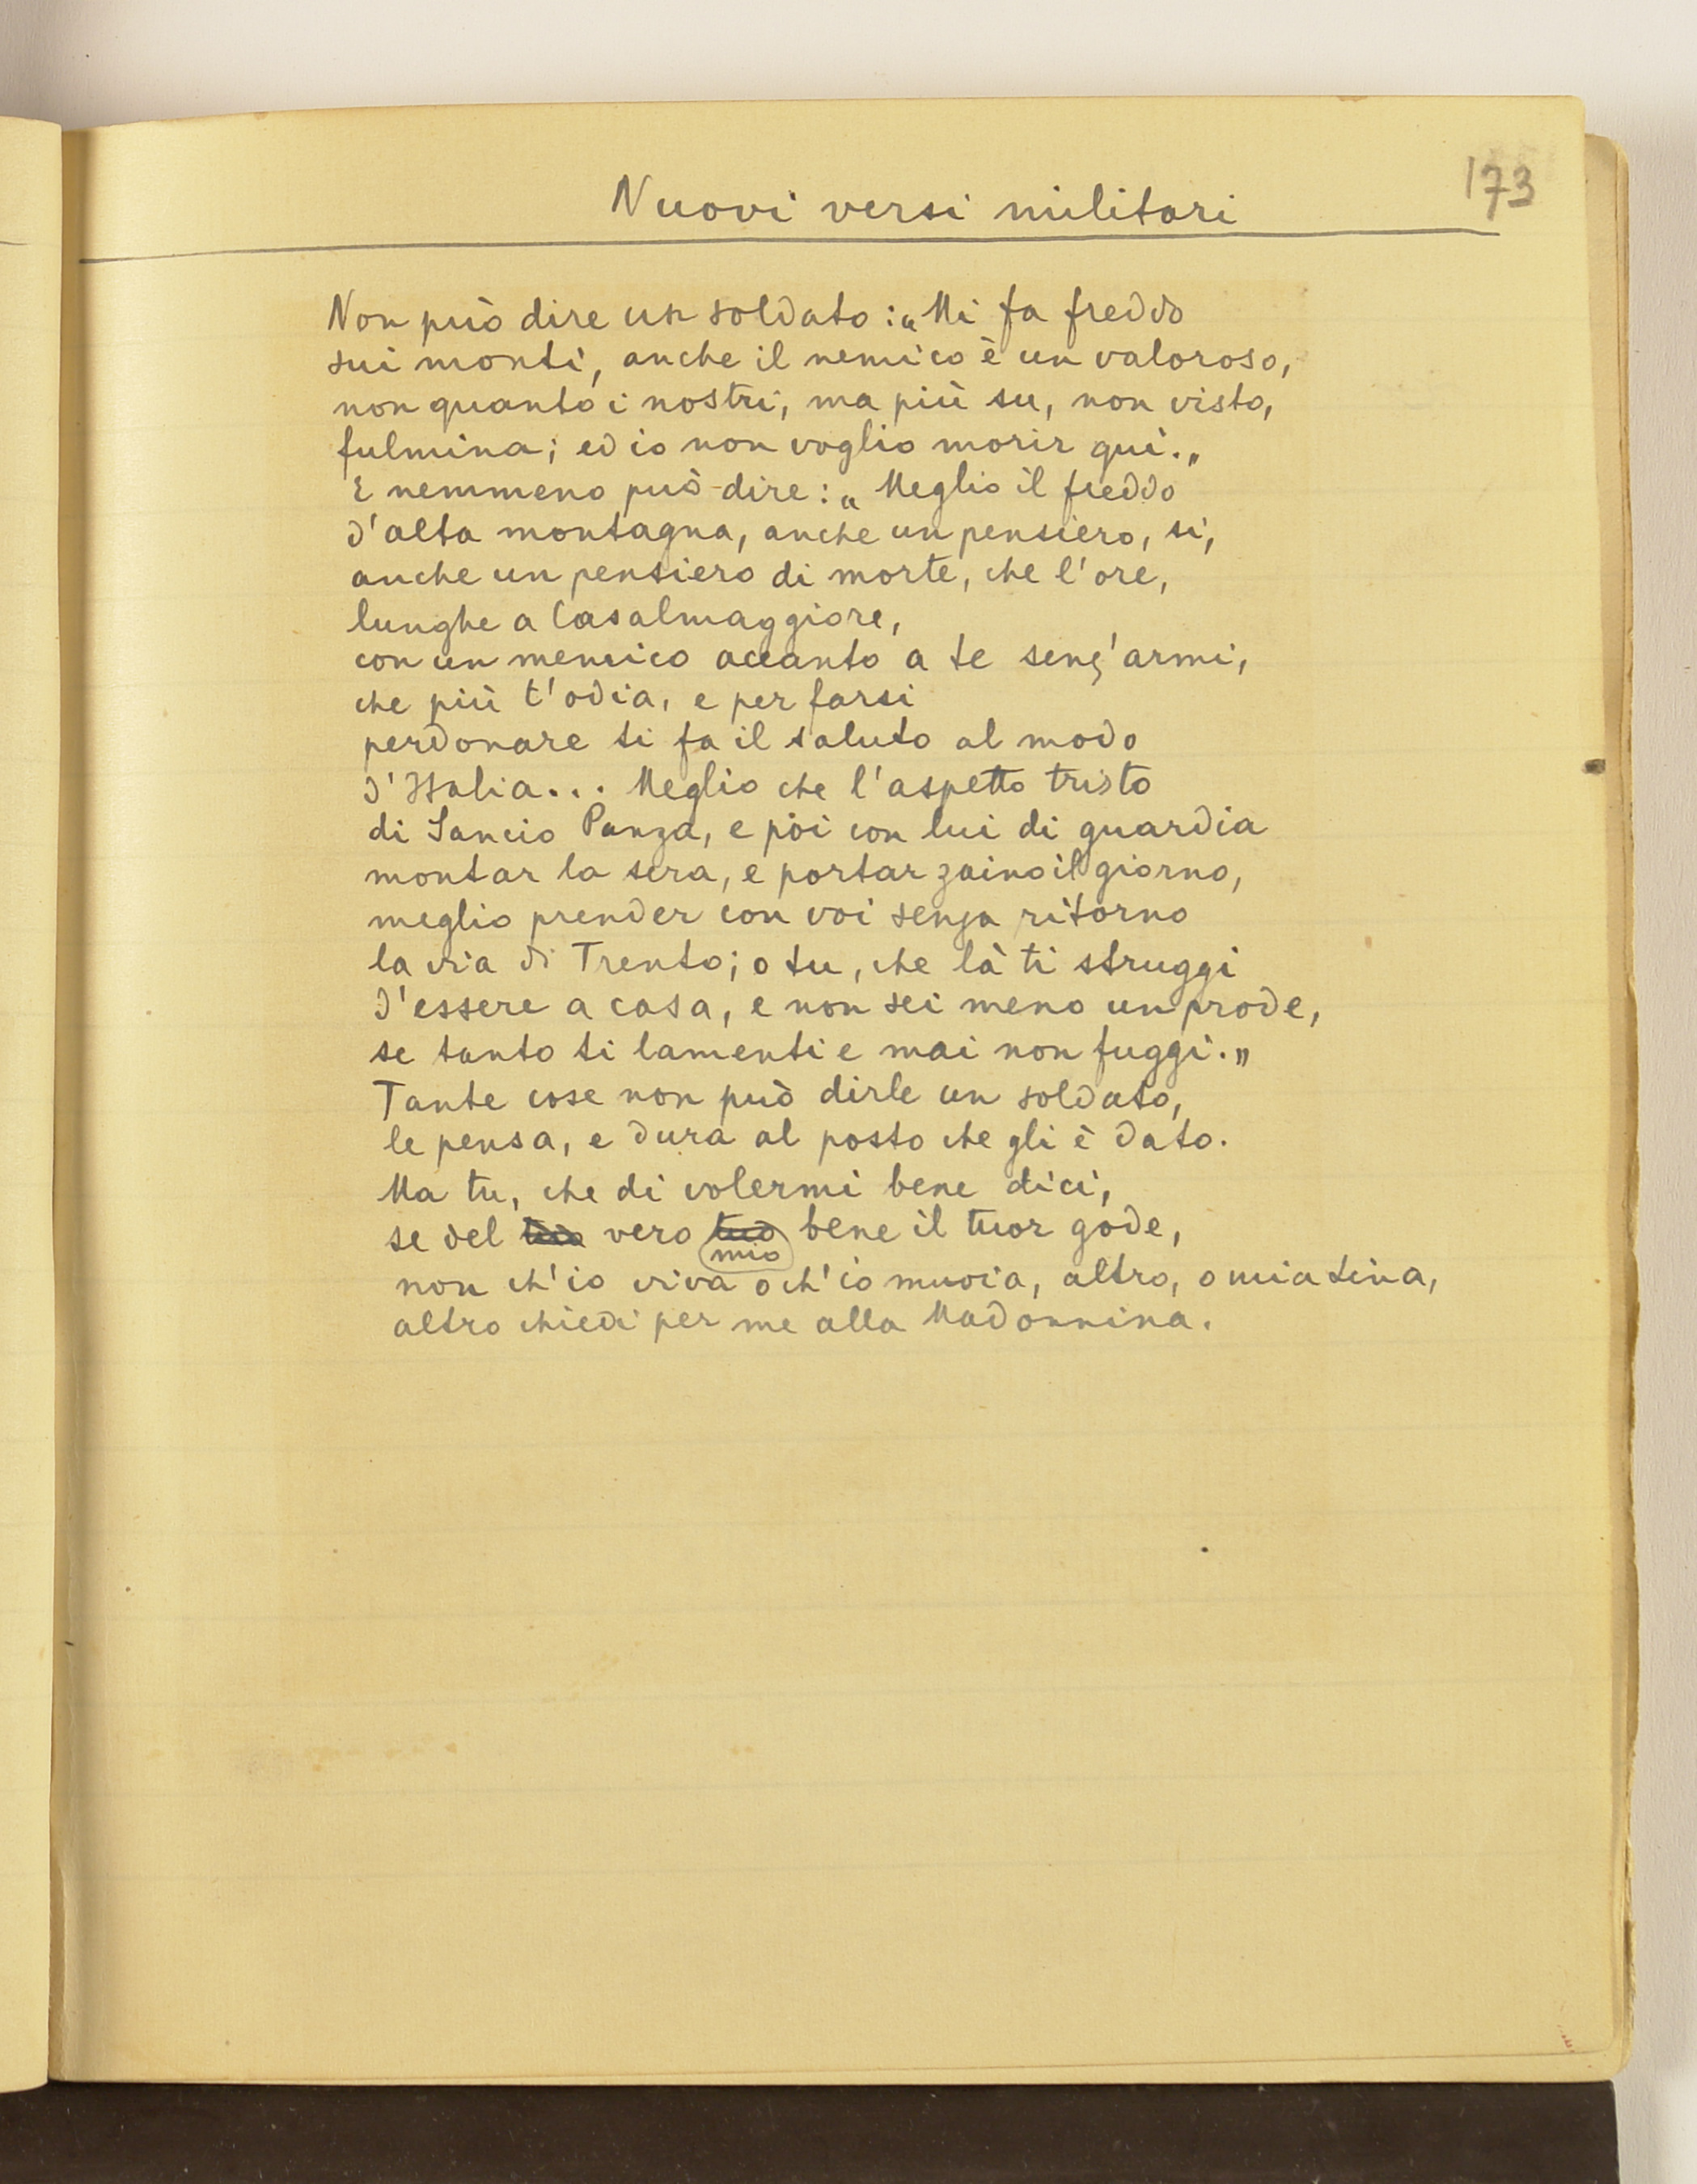 173
Nuovi versi militari
Non può dire un soldato: „Mi fa freddo
sui monti, anche il nemico è un valoroso,
non quanto i nostri, ma più su, non visto,
fulmina; ed io non voglio morir qui.„
E nemmeno può dire: „Meglio il freddo
d'alta montagna, anche un pensiero, sì,
anche un pensiero di morte, che l'ore,
lunghe a Casalmaggiore,
con un nemico accanto a te senz'armi,
che più t'odia, e per farsi
perdonare ti fa il saluto al modo
d'Italia... Meglio che l'aspetto tristo
di Sancio Panza, e poi con lui di guardia
montar la sera, e portar zaino il giorno,
meglio prender con voi senza ritorno
la via di Trento; o tu, che là ti struggi
d'essere a casa, e non sei meno un prode,
se tanto ti lamenti e mai non fuggi.„
Tante cose non può dirle un soldato,
le pensa, e dura al posto che gli è dato.
Ma tu, che di volermi bene dici,
se del tuo vero tuo bene il tuor gode,
mio
non ch'io viva o ch'io muoia, altro, o mia Lina,
altro chiedi per me alla Madonnina.